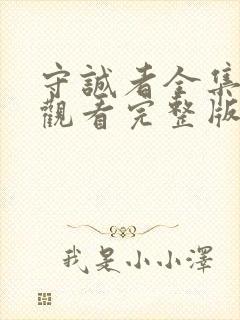 守誠者全集
觀看完整版
我是小小澤